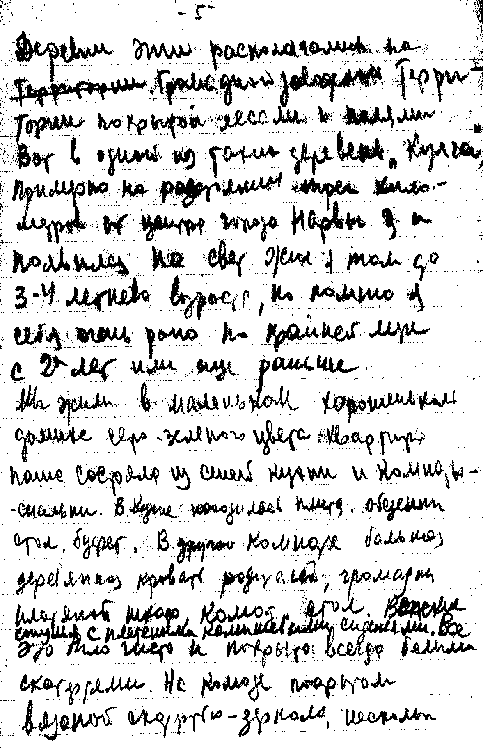 - 5 -
Деревни эти располагались на
территории, Громадной заводской Терри-
тории покрытой лесами и полями
Вот в одной из таких деревень „Кулга"
примерно на расстоянии трех кило-
метров от центра города Нарвы я и
появилась на свет Жила я там до
3-4 летнего возраста, но помню я
себя очень рано по крайней мере
с 2х лет или еще раньше.
Мы жили в маленьком хорошеньком
домике серо-зеленого цвета. Квартира
наша состояла из светлой кухни и комнаты-
-спальни. В кухне находилась плита, обеденный
стол, буфет. В другой комнате большая
деревянная кровать родителей, громадный
платяной шкаф комод, стол. Венские
стулья с плетеными камышевыми сиденьями. Все
это было чисто и покрыто всегда белыми
скатертями. На комоде покрытом
вязаной скатертью - зеркало, несколько